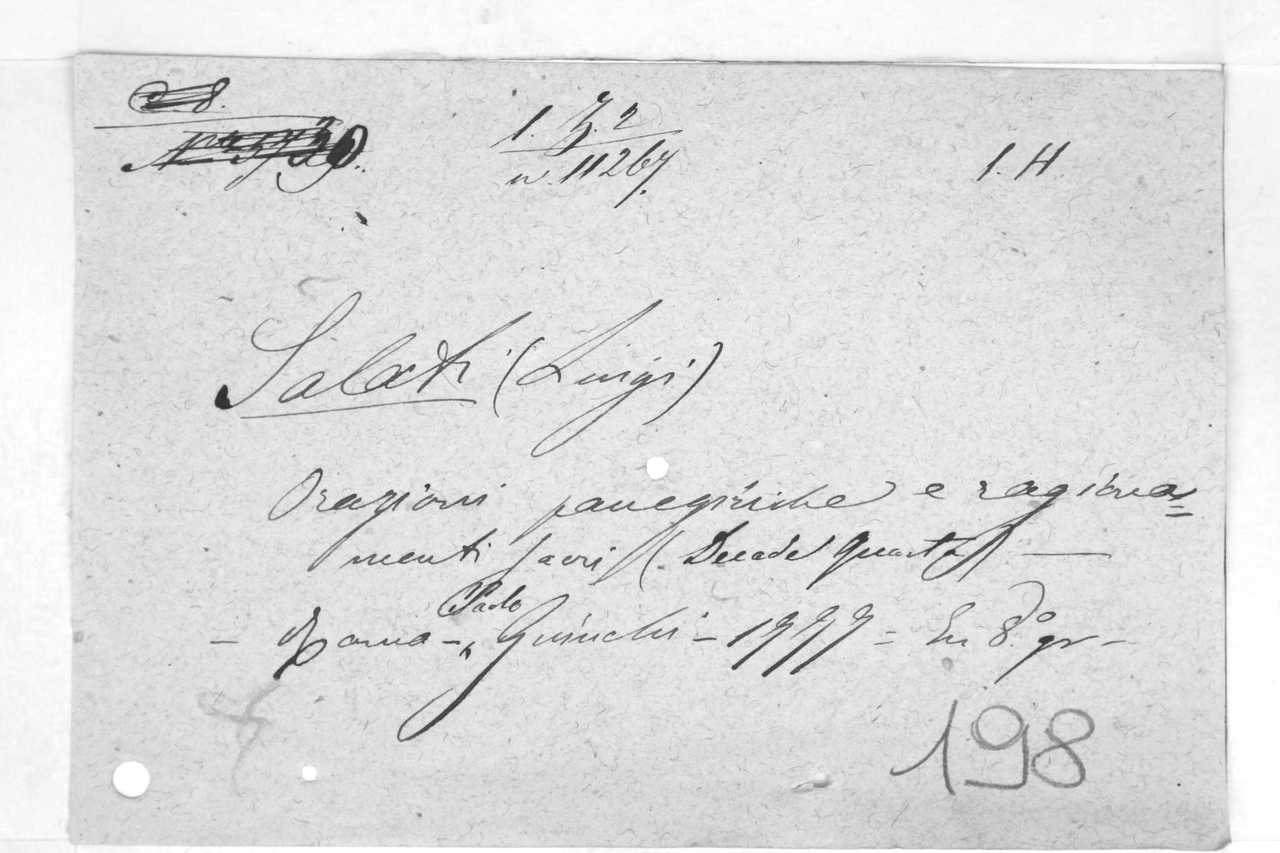 1. Z. 2
n. 11267.
1. H.
Salati (Luigi)
Orazioni panegiriche e ragiona=
menti sacri (Decade Quarta) —
Paolo
– Roma – Giunchi – 1777 = In 8.º gr –
198